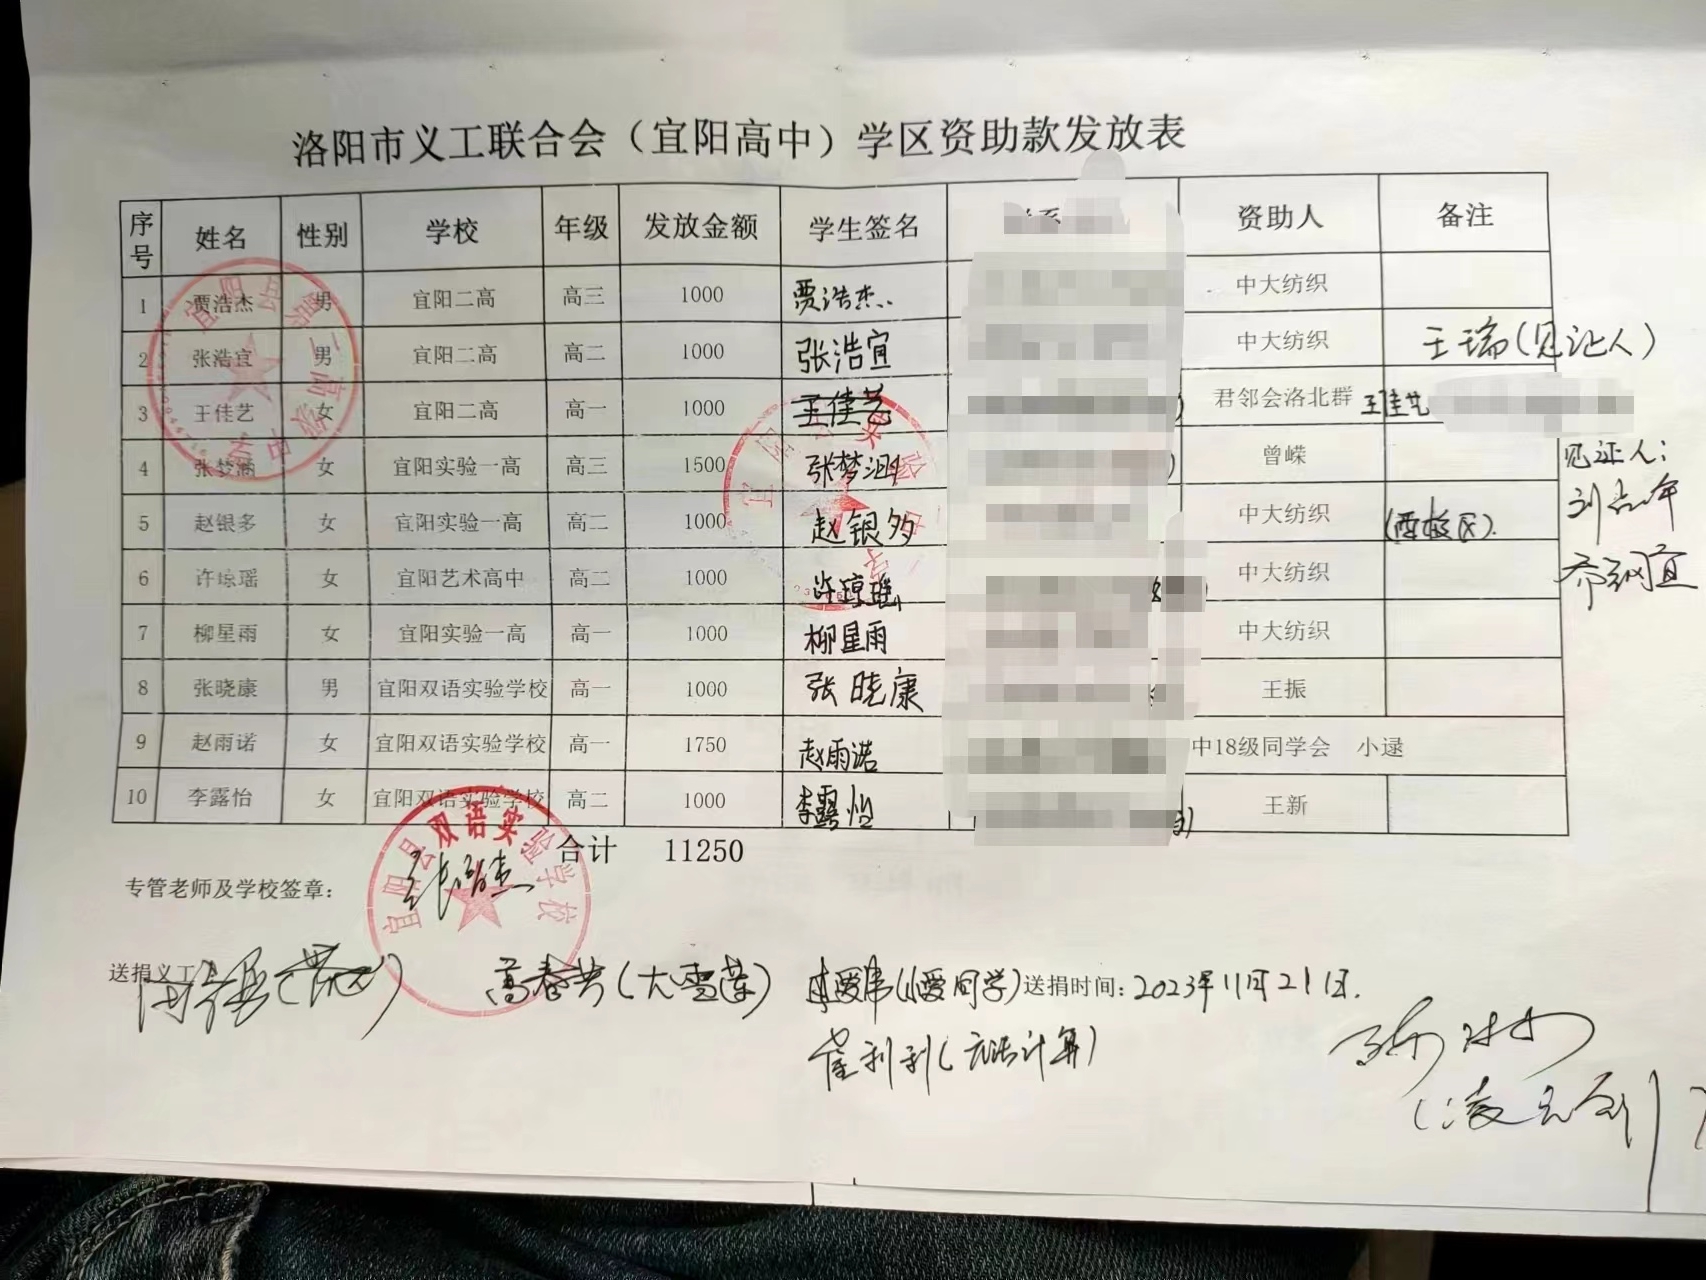 洛阳市义工联合会（宜阳高中）学区资助款发放表
序号 姓名 性别 学校 年级 发放金额 学生签名 资助人 备注
1 贾浩杰 男 宜阳二高 高三 1000 贾浩杰 中大纺织
2 张浩宜 男 宜阳二高 高二 1000 张浩宜 中大纺织 王瑞(见证人)
3 王佳艺 女 宜阳二高 高一 1000 王佳艺 君邻会洛北群 王佳艺
4 张梦涵 女 宜阳实验一高 高三 1500 张梦涵 曾嵘
见证人:
5 赵银多 女 宜阳实验一高 高二 1000 赵银多 中大纺织 (西校区).
6 许琼瑶 女 宜阳艺术高中 高二 1000 许琼瑶 中大纺织
7 柳星雨 女 宜阳实验一高 高一 1000 柳星雨 中大纺织
8 张晓康 男 宜阳双语实验学校 高一 1000 张晓康 王振
9 赵雨诺 女 宜阳双语实验学校 高一 1750 赵雨诺 中18级同学会 小逯
10 李露怡 女 宜阳双语实验学校 高二 1000 李露怡 王新
合计 11250
专管老师及学校签章：
宜阳县双语实验学校
送捐义工 高春芳(大雪莲) (小爱同学) 送捐时间：2023年11月21日.
崔利利(